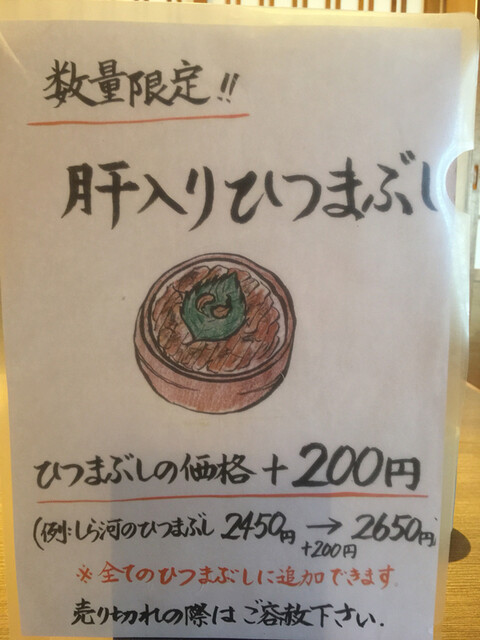 数量限定!!
肝入りひつまぶし
ひつまぶしの価格+200円
(例:しら河のひつまぶし 2450円→2650円)
+200円
※全てのひつまぶしに追加できます.
売り切れの際はご容赦下さい.